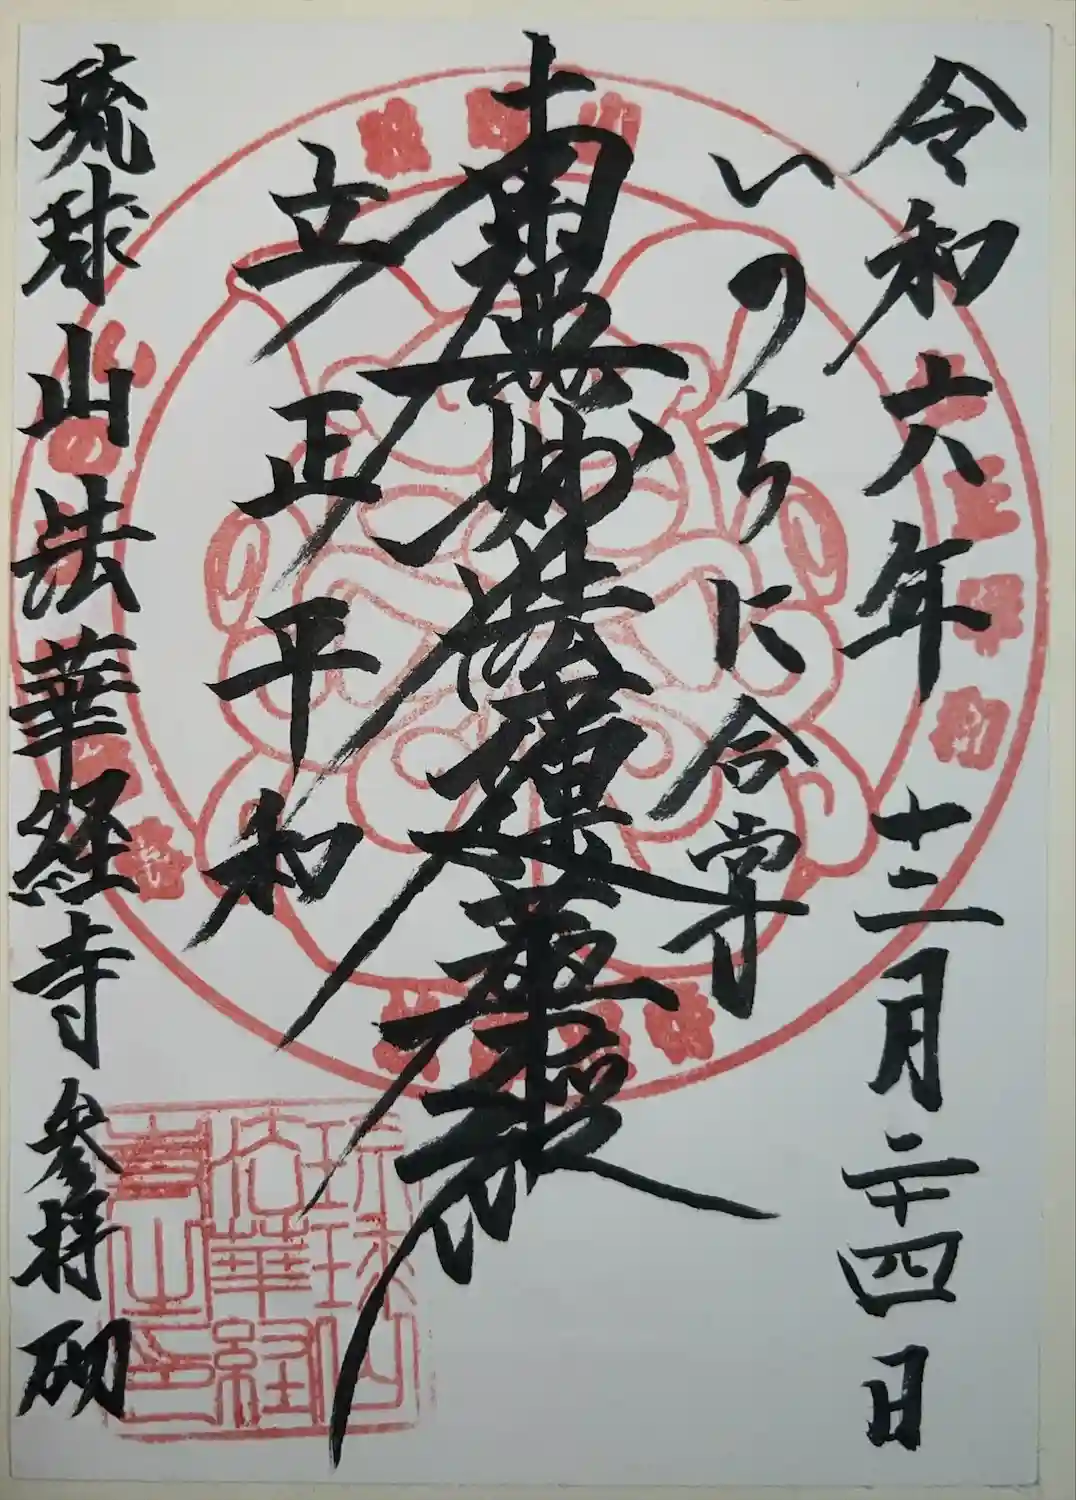 令和六年十二月二十四日
いのちに合掌
南無妙法蓮華経
立正平和
琉球山法華経寺 参拝砌
琉球山
法華経
寺主印